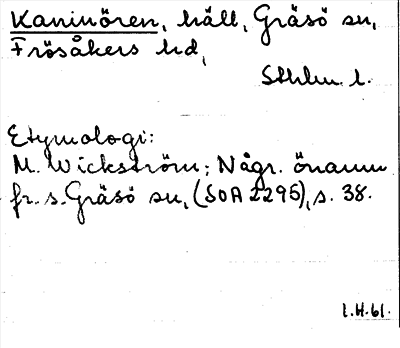 Kaninören, häll, Gräsö sn,
Frösåkers hd,
Sthlm l.
Etymologi:
M. Wickström; Någr. önamn
fr. s. Gräsö sn, (SOA 2295), s. 38.
I.H.61.